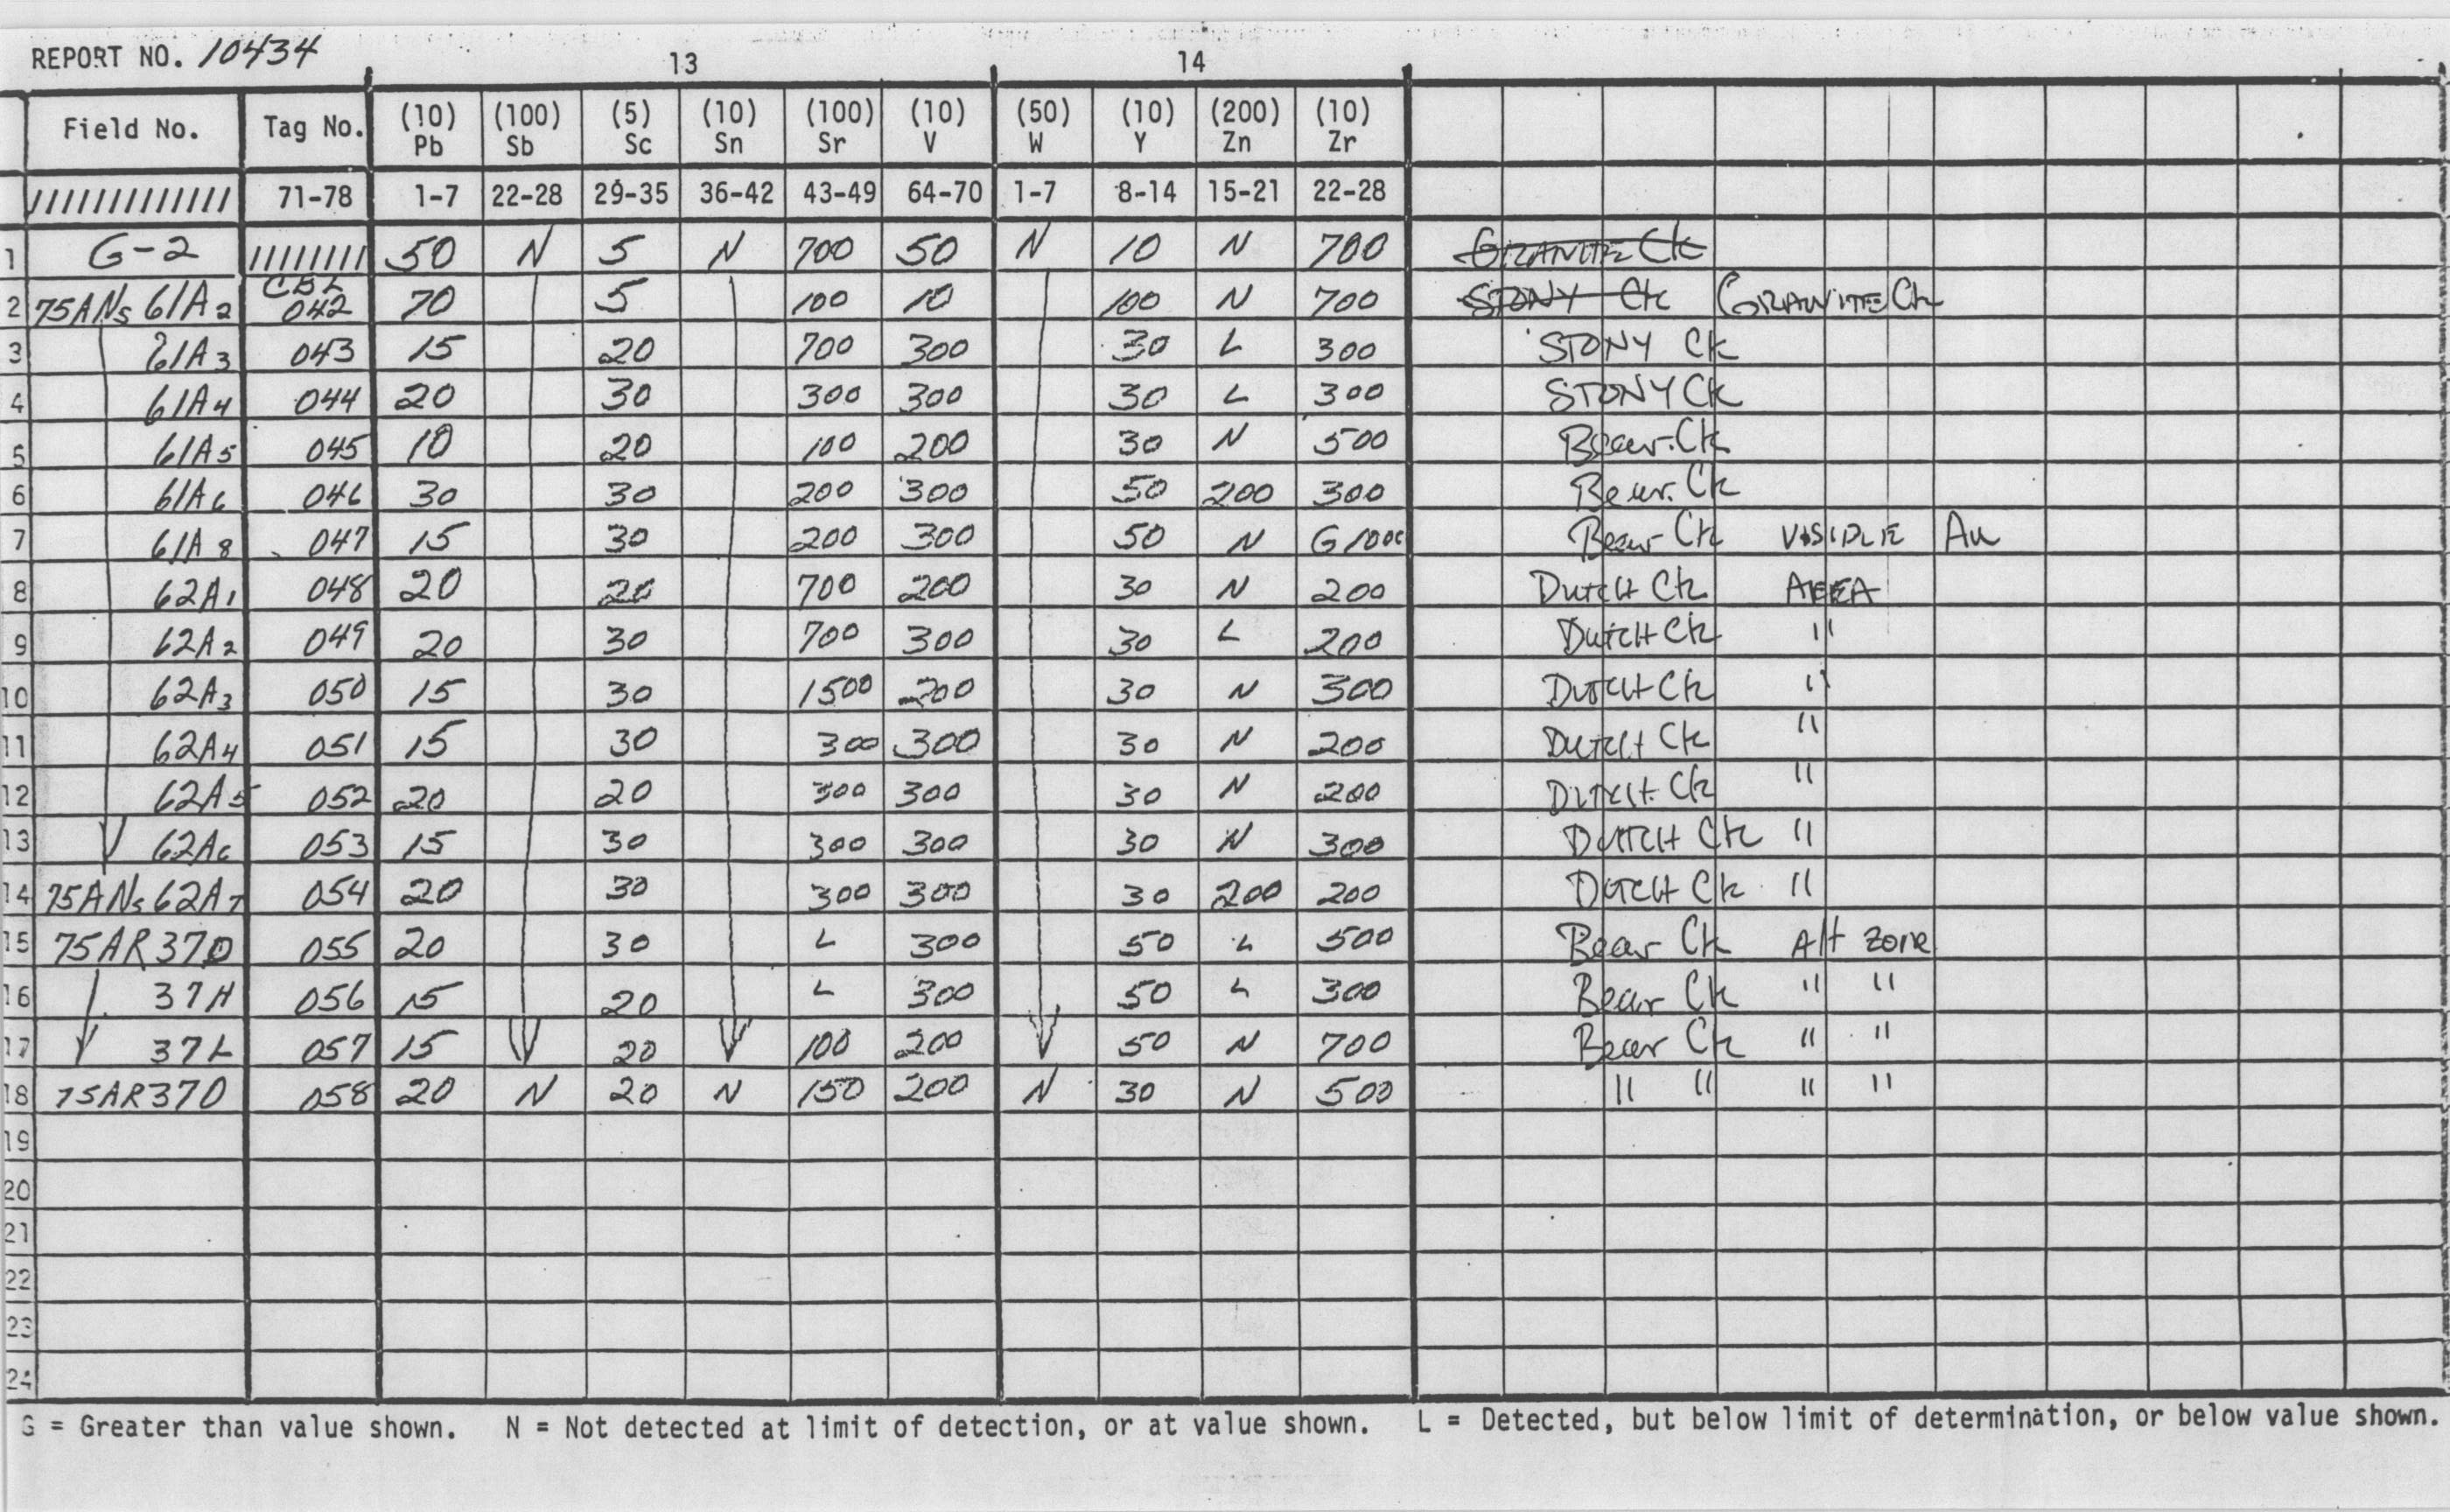 REPORT NO. 10434
13 14
Field No. Tag No. (10) Pb (100) Sb (5) Sc (10) Sn (100) Sr (10) V (50) W (10) Y (200) Zn (10) Zr
///////////// 71-78 1-7 22-28 29-35 36-42 43-49 64-70 1-7 8-14 15-21 22-28
1 G-2 //////// 50 N 5 N 700 50 N 10 N 700 GRANITE Ck
CBL
2 75ANs 61A2 042 70 5 100 10 100 N 700 STONY Ck GRANITE Ck
3 61A3 043 15 20 700 300 30 L 300 STONY Ck
4 61A4 044 20 30 300 300 30 L 300 STONY Ck
5 61A5 045 10 20 100 200 30 N 500 Bear Ck
6 61A6 046 30 30 200 300 50 200 300 Bear Ck
7 61A8 047 15 30 200 300 50 N G1000 Bear Ck VISIBLE Au
8 62A1 048 20 20 700 200 30 N 200 DUTCH Ck AREA
9 62A2 049 20 30 700 300 30 L 200 DUTCH Ck "
10 62A3 050 15 30 1500 200 30 N 300 DUTCH Ck "
11 62A4 051 15 30 300 300 30 N 200 DUTCH Ck "
12 62A5 052 20 20 300 300 30 N 200 DUTCH Ck "
13 62A6 053 15 30 300 300 30 N 300 DUTCH Ck "
14 75ANs 62A7 054 20 30 300 300 30 200 200 DUTCH Ck "
15 75AR 37D 055 20 30 L 300 50 L 500 Bear Ck Alt zone
16 37H 056 15 20 L 300 50 L 300 Bear Ck " "
17 37L 057 15 20 100 200 50 N 700 Bear Ck " "
18 75AR37O 058 20 N 20 N 150 200 N 30 N 500 " " " "
19
20
21
22
23
24
G = Greater than value shown. N = Not detected at limit of detection, or at value shown. L = Detected, but below limit of determination, or below value shown.